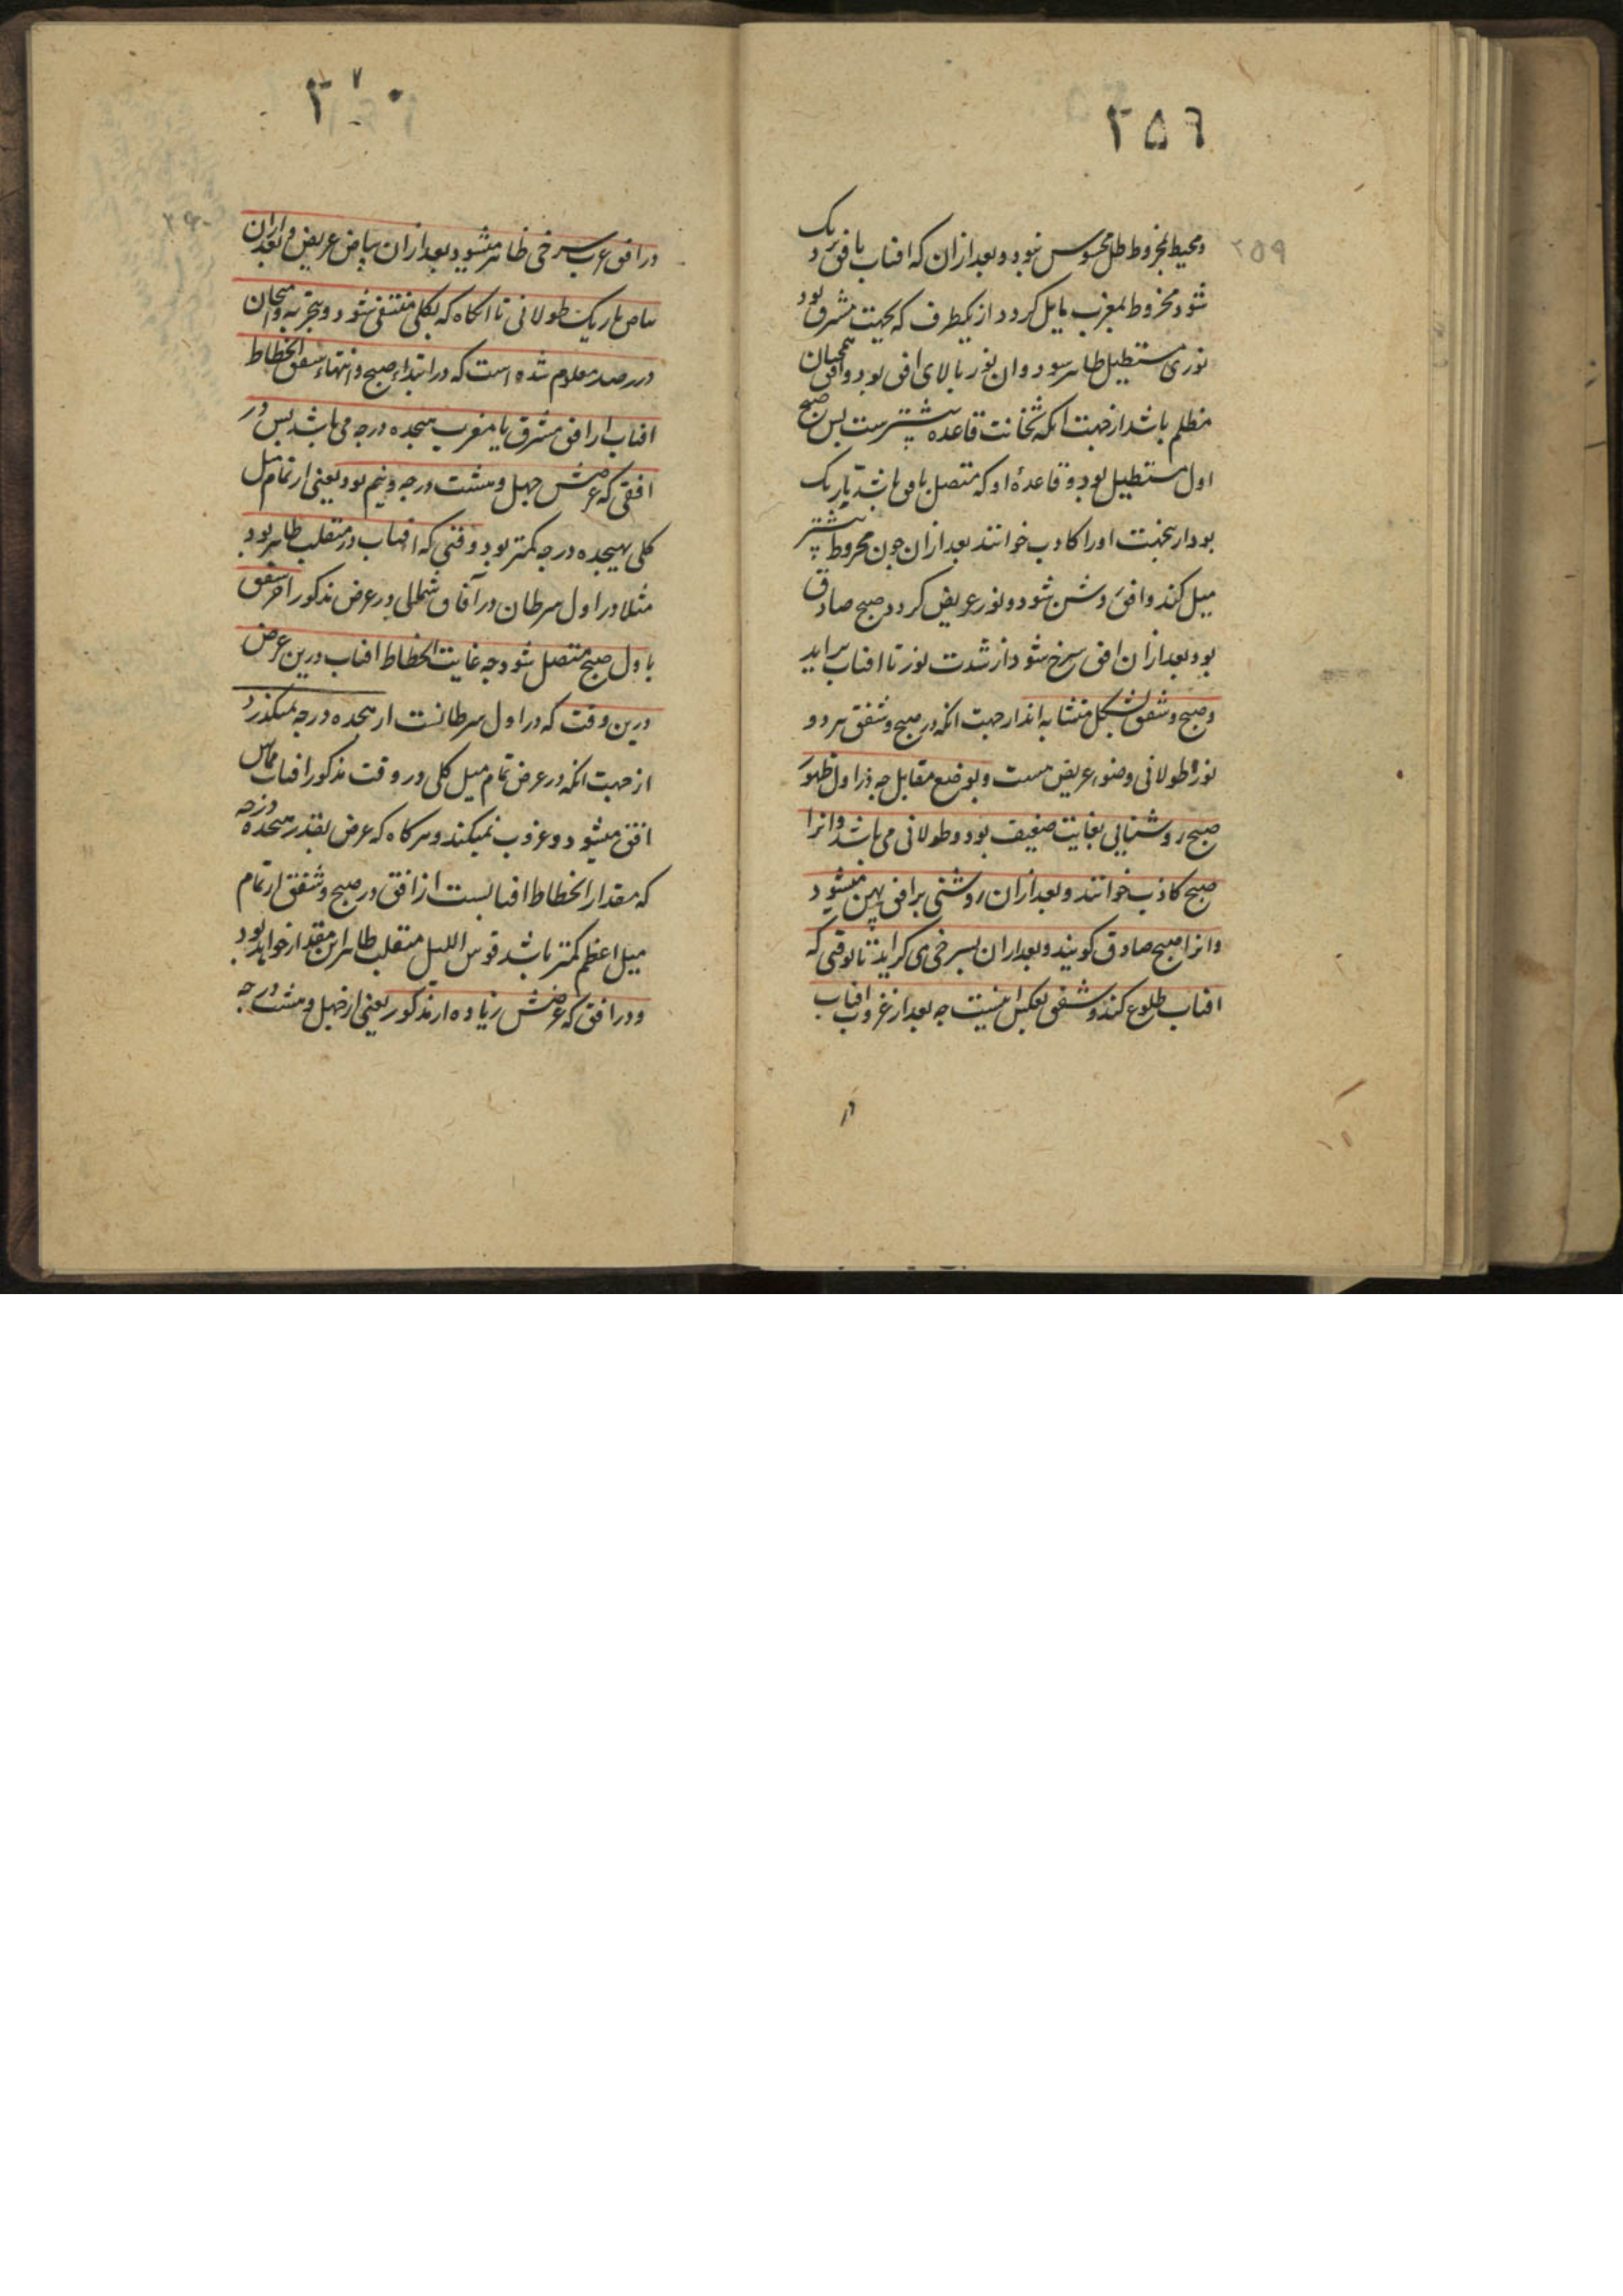 ۲۵۶
۲۵۹
ومحیط مخروط ظل محسوس نبود و بعد ازان که افتاب بافق نزدیک
شود مخروط بمغرب مایل کردد از یکطرف که بجهت مشرق بود
نوری مستطیل ظاهر سود وان نور بالای افق بود وافق همچنان
مظلم باشد ازجهت انکه ثخانت قاعده بیشترست پس صبح
اول مستطیل بود و قاعدهٔ او که متصل بافق باشد تاریک
بود ازینجهت اورا کاذب خوانند بعد ازان چون مخروط بیشتر
میل کند وافق روشن شود و نور عریض کردد صبح صادق
بود بعد ازان افق سرخ شود از شدت نور تا افتاب براید
وصبح و شفق بشکل متشابه اند ازجهت انکه در صبح و شفق هر دو
نور طولانی وضوء عریض هست و بوضع مقابل چه در اول ظهور
صبح روشنایی بغایت ضعیف بود و طولانی می باشد وانرا
صبح کاذب خوانند و بعد ازان روشنی بر افق پهن میشود
وانرا صبح صادق کویند و بعد ازان بسرخی می کراید تا بوقتی که
افتاب طلوع کند و شفق بعکس اینست چه بعد از غروب افتاب
در
۲۷۰
۲۶۰
در افق غرب سرخی ظاهر میشود بعد ازان بیاض عریض و بعد ازان
بیاض باریک طولانی تا انکاه که بکلی منتفی شود و بتجربه وامتحان
در رصد معلوم شده است که در ابتداء صبح وانتهاء شفق انحطاط
افتاب از افق مشرق یا مغرب هیجده درجه می باشد پس در
افقی که عرضش چهل و هشت درجه ونیم بود یعنی از تمام میل
کلی بهیجده درجه کمتر بود وقتی که افتاب در منقلب ظاهر بود
مثلا در اول سرطان در آفاق شمالی در عرض مذکور اخر شفق
باول صبح متصل شود چه غایت انحطاط افتاب درین عرض
درین وقت که در اول سرطانست از هیجده درجه نمیکذرد
از جهت انکه در عرض تمام میل کلی در وقت مذکور افتاب مماس
افق میشود و غروب نمیکند و هرکاه که عرض بقدر هیجده درجه
که مقدار انحطاط افتابست از افق در صبح و شفق از تمام
میل اعظم کمتر باشد قوس اللیل منقلب ظاهر این مقدار خواهد بود
و در افق که عرضش زیاده از مذکور یعنی از چهل و هشت درجه